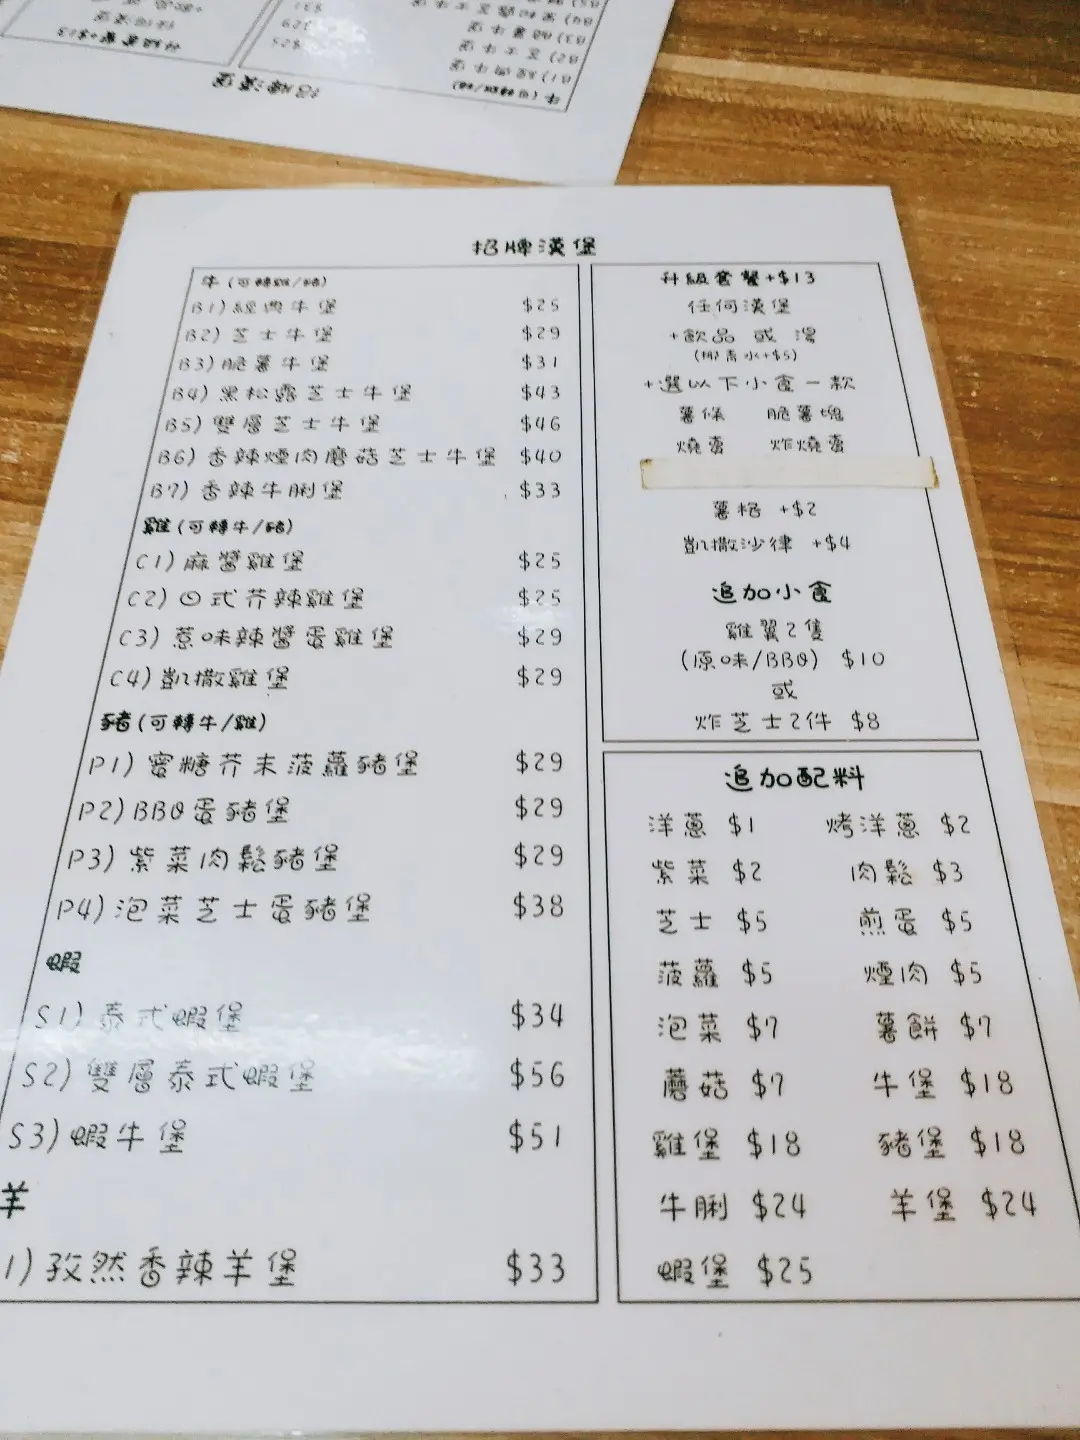 招牌漢堡
牛(可轉雞/豬)
B1)經典牛堡 $25
B2)芝士牛堡 $29
B3)脆薯牛堡 $31
B4)黑松露芝士牛堡 $43
B5)雙層芝士牛堡 $46
B6)香辣煙肉磨菇芝士牛堡 $40
B7)香辣牛脷堡 $33
雞(可轉牛/豬)
C1)麻醬雞堡 $25
C2)日式芥辣雞堡 $25
C3)惹味辣醬蛋雞堡 $29
C4)凱撒雞堡 $29
豬(可轉牛/雞)
P1)蜜糖芥末菠蘿豬堡 $29
P2)BBQ蛋豬堡 $29
P3)紫菜肉鬆豬堡 $29
P4)泡菜芝士蛋豬堡 $38
蝦
S1)泰式蝦堡 $34
S2)雙層泰式蝦堡 $56
S3)蝦牛堡 $51
羊
1)孜然香辣羊堡 $33
升級套餐+$13
任何漢堡
+飲品 或 湯
(椰青水+$5)
+選以下小食一款
薯條 脆薯塊
燒賣 炸燒賣
薯格 +$2
凱撒沙律 +$4
追加小食
雞翼2隻
(原味/BBQ) $10
或
炸芝士2件 $8
追加配料
洋蔥 $1 烤洋蔥 $2
紫菜 $2 肉鬆 $3
芝士 $5 煎蛋 $5
菠蘿 $5 煙肉 $5
泡菜 $7 薯餅 $7
蘑菇 $7 牛堡 $18
雞堡 $18 豬堡 $18
牛脷 $24 羊堡 $24
蝦堡 $25
招牌漢堡
牛(可轉雞/豬)
B1)經典牛堡 $25
B2)芝士牛堡 $29
B3)脆薯牛堡 $31
升級套餐+$13
任何漢堡